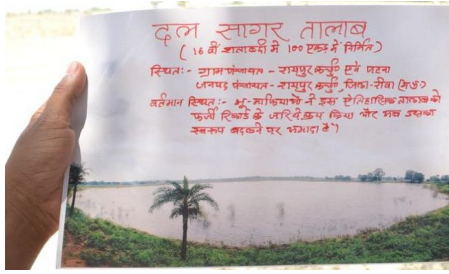 दल सागर तालाब
( 16 वी शताब्दी में 100 एकड़ में निर्मित )
स्थित:- ग्राम पंचायत - रायपुर कर्चु० एवं पटना
जनपद पंचायत - रायपुर कर्चु० जिला-रीवा (म०प्र०)
वर्तमान स्थित:- भू-माफियाओ ने इस ऐतिहासिक तालाब को
फर्जी रिकार्ड के जरिये क्रय किया और अब उसका
स्वरूप बदलने पर अमादा है।